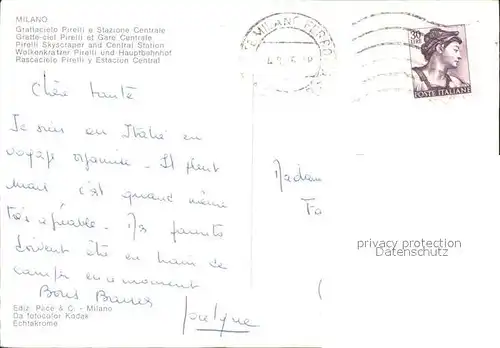 MILANO
Grattacielo Pirelli e Stazione Centrale
Gratte-ciel Pirelli et Gare Centrale
Pirelli Skyscraper and Central Station
Wolkenkratzer Pirelli und Hauptbahnhof
Rascacielo Pirelli y Estacion Central
30
LIRE
POSTE ITALIANE
MILANO
Chère tante
Je suis en Italie en
voyage organisé. Il pleut
mais c'est quand même
très agréable. Mes parents
doivent être en train de
camper en ce moment
Bons Baisers
Jocelyne
Madam
Fa
privacy protection
Datenschutz
Ediz. Pace & C. - Milano
Da fotocolor Kodak
Echtakrome